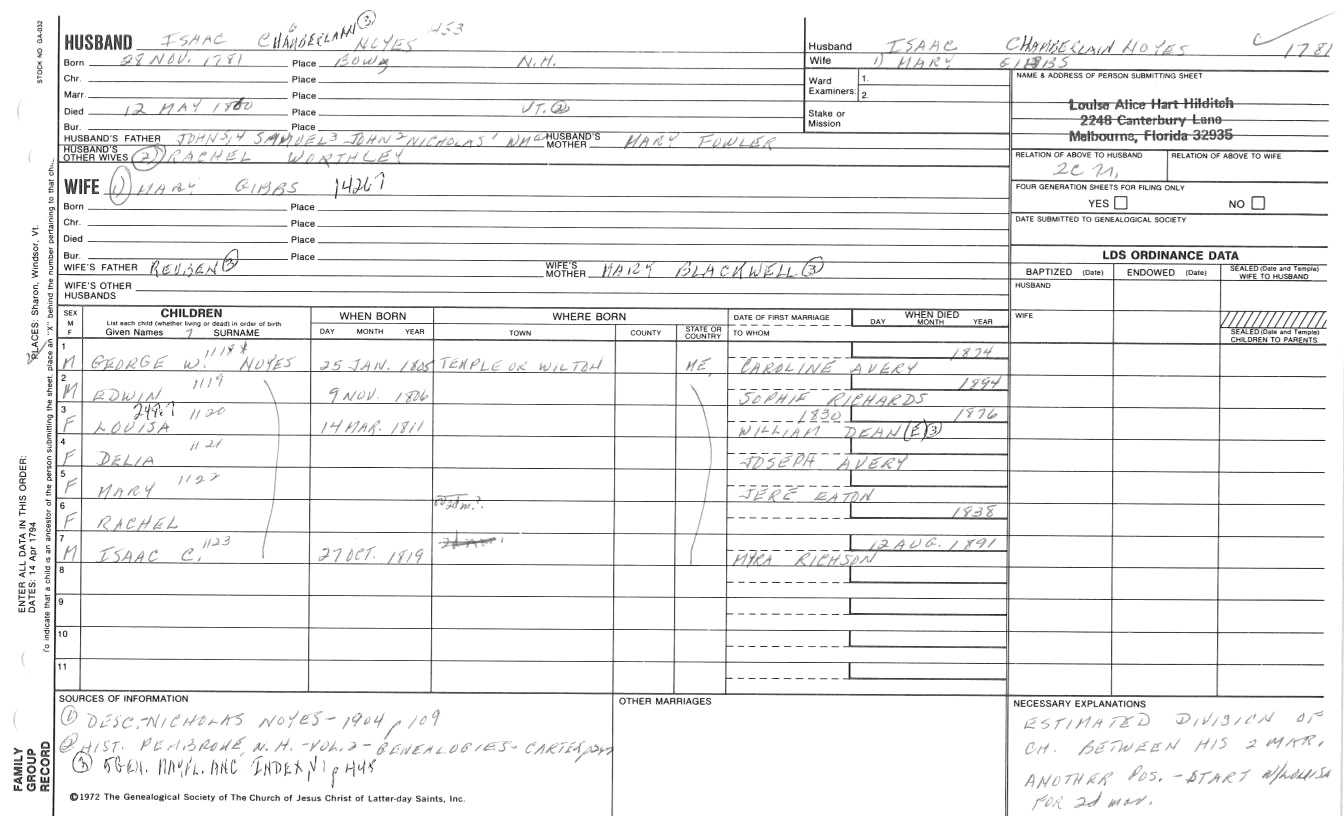 STOCK NO. GA-032
HUSBAND ISAAC CHAMBERLAIN ③ NOYES 453
Born 28 NOV. 1781 Place BOW, N.H.
Chr. Place
Marr. Place
Died 12 MAY 1860 Place VT. ②
Bur. Place
HUSBAND'S FATHER JOHN SAMUEL 3 JOHN 2 NICHOLAS 1 HUSBAND'S MOTHER MARY FOWLER
HUSBAND'S OTHER WIVES ② RACHEL WORTHLEY
WIFE 1) MARY GIBBS 14267
Born Place
Chr. Place
Died Place
Bur. Place
WIFE'S FATHER REUBEN ③ WIFE'S MOTHER MARY BLACKWELL ③
WIFE'S OTHER HUSBANDS
Husband ISAAC CHAMBERLAIN NOYES 1781
Wife 1) MARY GIBBS
Ward Examiners: 1.
2.
Stake or Mission
NAME & ADDRESS OF PERSON SUBMITTING SHEET
Louise Alice Hart Hilditch
2248 Canterbury Lane
Melbourne, Florida 32935
RELATION OF ABOVE TO HUSBAND RELATION OF ABOVE TO WIFE
FOUR GENERATION SHEETS FOR FILING ONLY
YES NO
DATE SUBMITTED TO GENEALOGICAL SOCIETY
LDS ORDINANCE DATA
BAPTIZED (Date) ENDOWED (Date) SEALED (Date and Temple) WIFE TO HUSBAND
HUSBAND
WIFE
SEALED (Date and Temple) CHILDREN TO PARENTS
SEX M F CHILDREN WHEN BORN WHERE BORN DATE OF FIRST MARRIAGE WHEN DIED
List each child (whether living or dead) in order of birth
Given Names 7 SURNAME DAY MONTH YEAR TOWN COUNTY STATE OR COUNTRY TO WHOM DAY MONTH YEAR
1 M GEORGE W. 1118 NOYES 25 JAN. 1805 TEMPLE OR WILTON ME, CAROLINE AVERY 1874
2 M EDWIN 1119 9 NOV. 1806 SOPHIE RICHARDS 1894
3 F LOUISA 1120 14 MAR. 1811 1830 WILLIAM DEAN (E) ③ 1876
4 F DELIA 1121 JOSEPH AVERY
5 F MARY 1122 JERE EATON
6 F RACHEL 2d m.? 1838
7 M ISAAC C. 1123 27 OCT. 1819 MYRA RICHSON 12 AUG. 1891
8
9
10
11
SOURCES OF INFORMATION
① DESC.-NICHOLAS NOYES-1904, p 109
② HIST. PEMBROKE, N.H.-VOL.2-GENEALOGIES-CARTER,
③ 5 GEN. MAYFL. ANC INDEX, V1 p 445
OTHER MARRIAGES
NECESSARY EXPLANATIONS
ESTIMATED DIVISION OF
CH. BETWEEN HIS 2 MAR.
ANOTHER POS. - START W/LOUISA
FOR 2d mar.
©1972 The Genealogical Society of The Church of Jesus Christ of Latter-day Saints, Inc.
FAMILY GROUP RECORD
ENTER ALL DATA IN THIS ORDER:
DATES: 14 Apr 1794
PLACES: Sharon, Windsor, Vt.
To indicate that a child is an ancestor of the person submitting the sheet, place an "X" behind the number pertaining to that